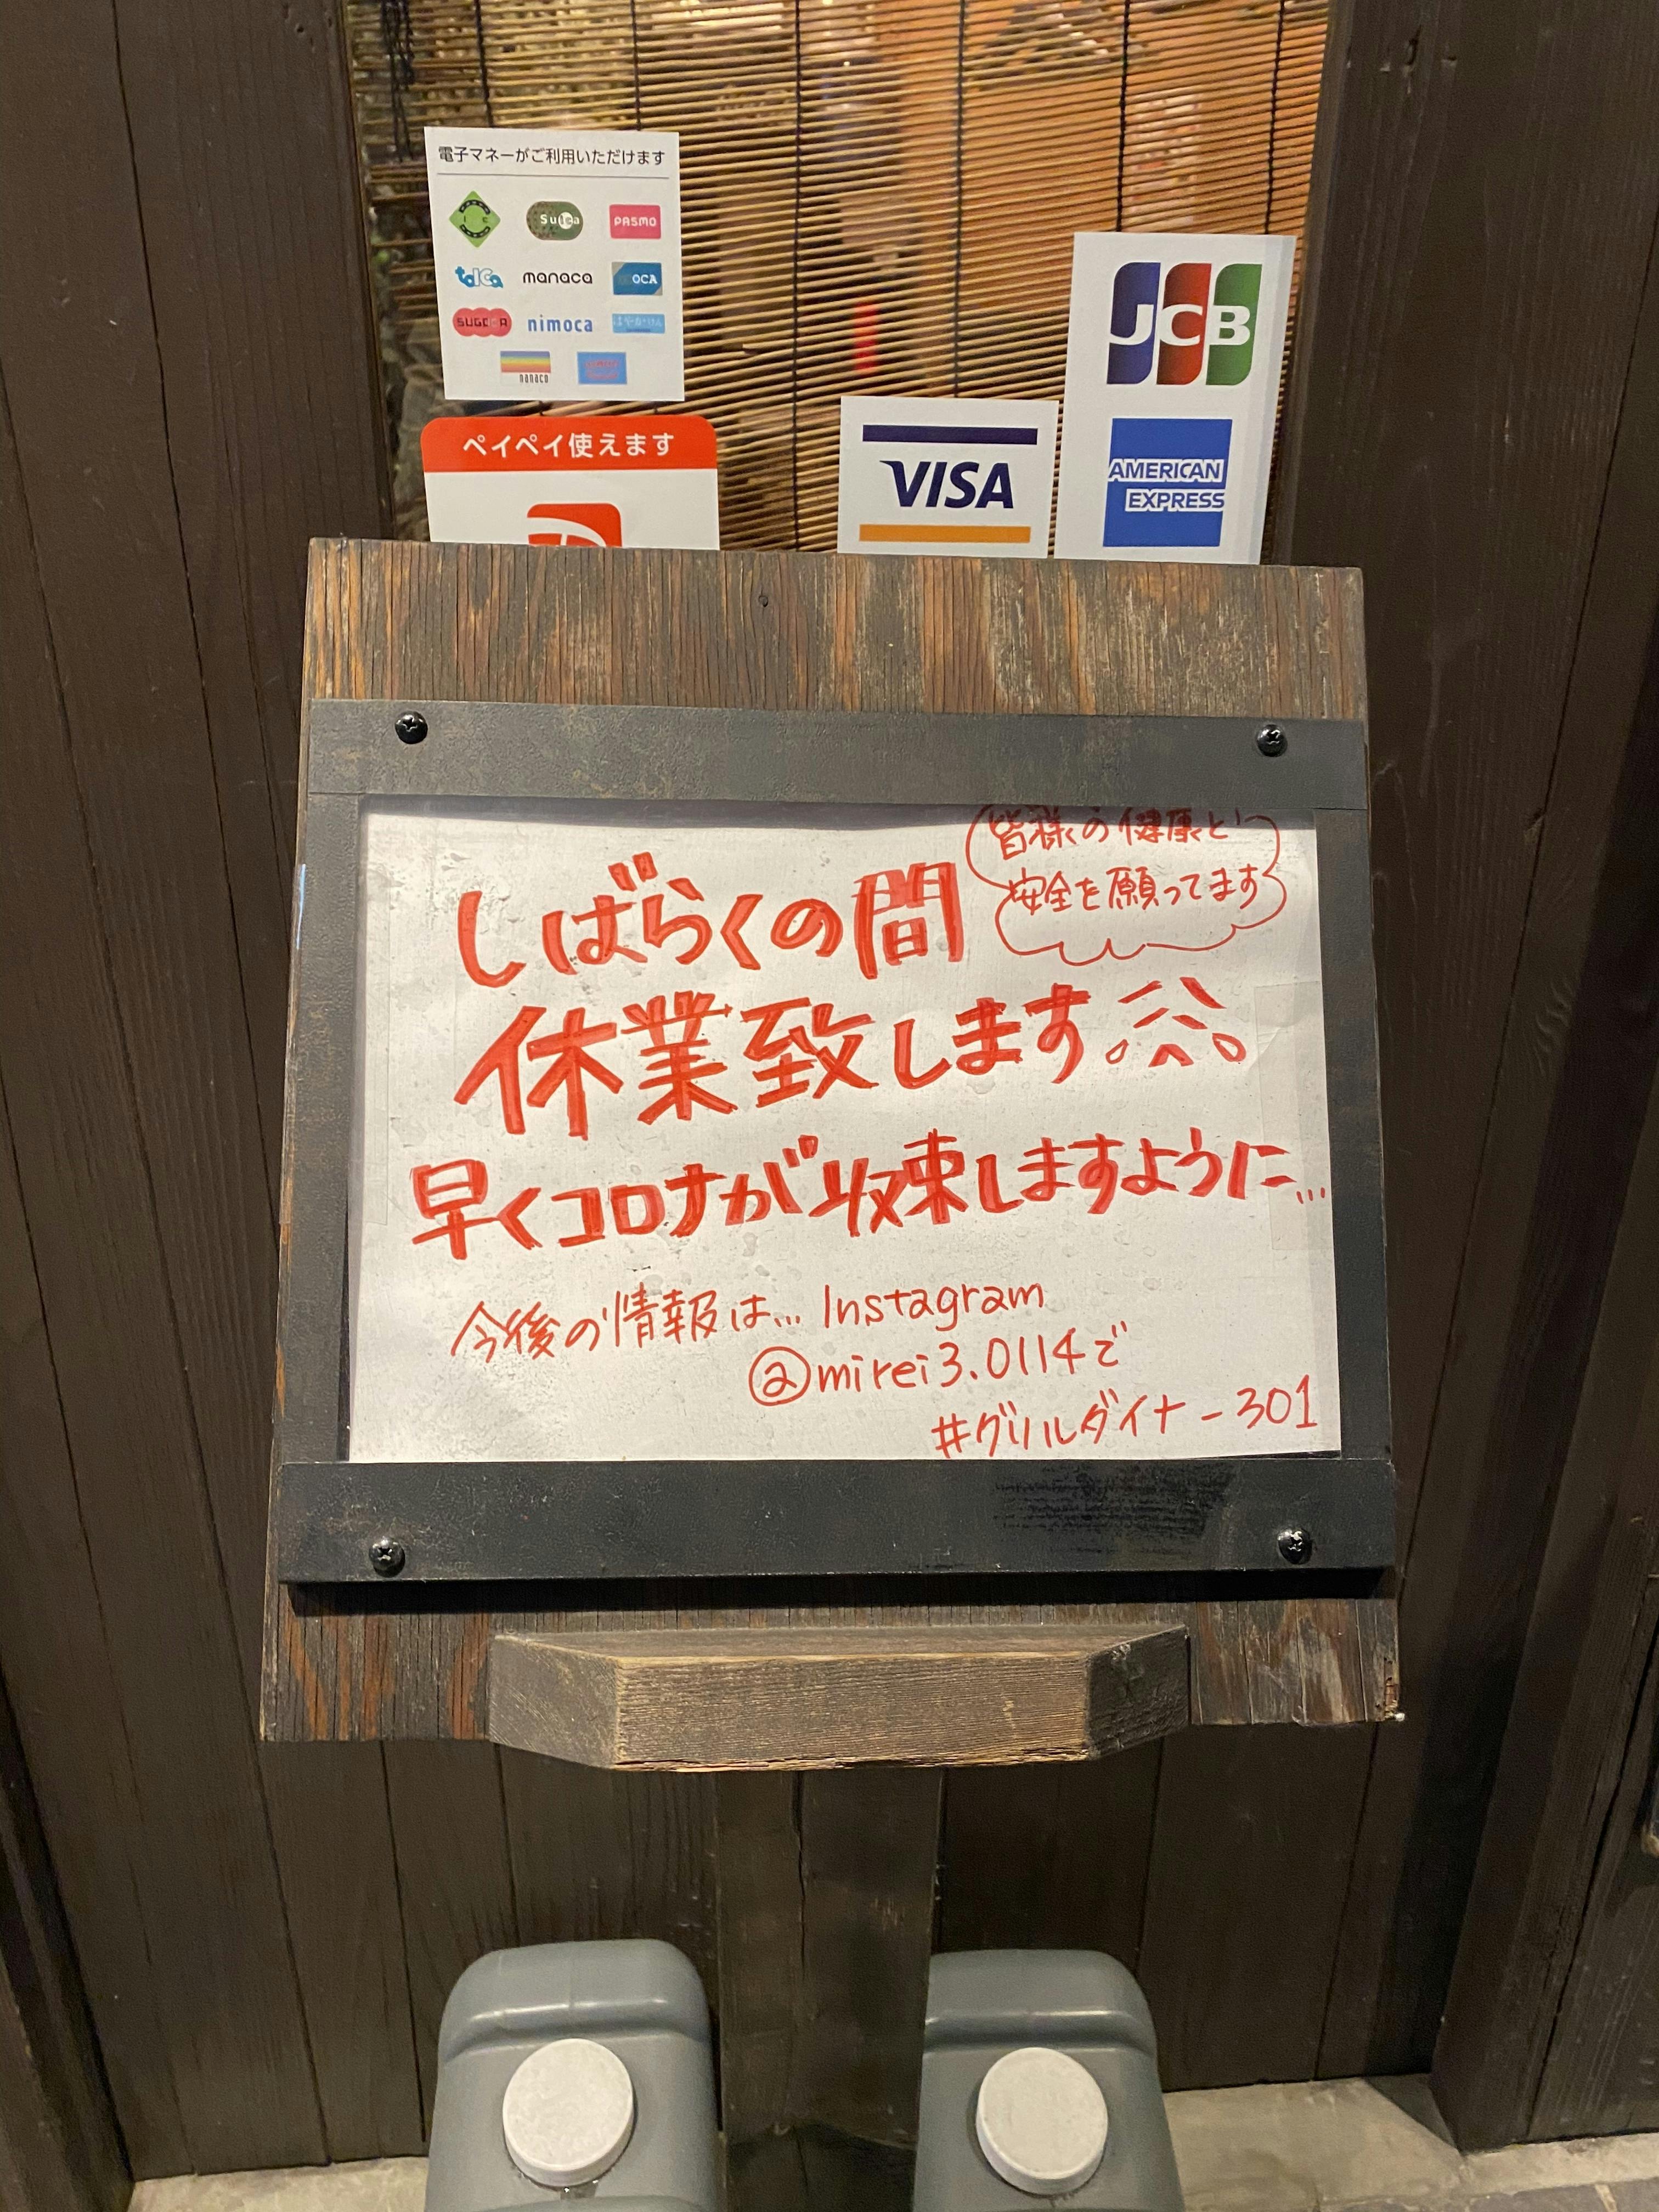 電子マネーがご利用いただけます
IC Suica PASMO
toICa manaca
SUGOCA nimoca はやかけん
nanaco
ペイペイ使えます
JCB
VISA
AMERICAN
EXPRESS
皆様の健康と
安全を願ってます
しばらくの間
休業致します
早くコロナが収束しますように...
今後の情報は... Instagram
@mirei3.0114で
#グリルダイナー301